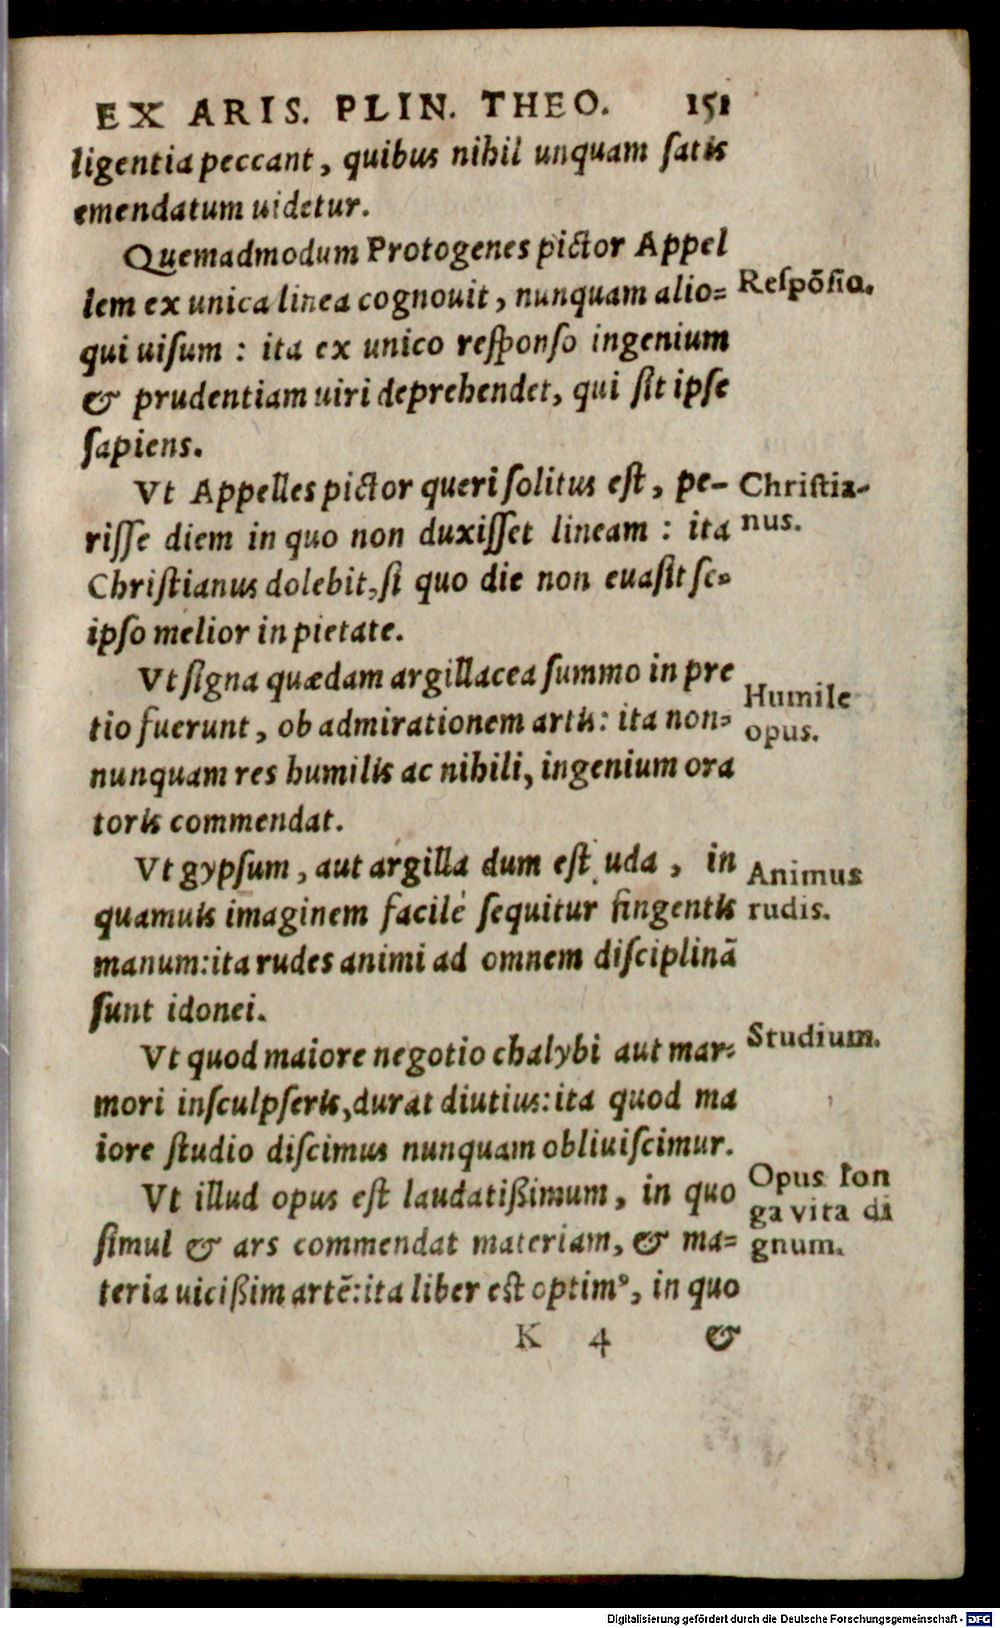 EX ARIS. PLIN. THEO. 151
ligentia peccant, quibus nihil unquam ſatis
emendatum uidetur.
Quemadmodum Protogenes pictor Appel
lem ex unica linea cognouit, nunquam alio=
qui uiſum : ita ex unico reſponſo ingenium
& prudentiam uiri deprehendet, qui ſit ipſe
ſapiens.
Reſpōſio.
Vt Appelles pictor queri ſolitus eſt, pe-
riſſe diem in quo non duxiſſet lineam : ita
Chriſtianus dolebit, ſi quo die non euaſit ſe=
ipſo melior in pietate.
Chriſtia-
nus.
Vt ſigna quædam argillacea ſummo in pre
tio fuerunt, ob admirationem artis: ita non=
nunquam res humilis ac nihili, ingenium ora
toris commendat.
Humile
opus.
Vt gypſum, aut argilla dum eſt uda, in
quamuis imaginem facilè ſequitur fingentis
manum: ita rudes animi ad omnem diſciplinā
ſunt idonei.
Animus
rudis.
Vt quod maiore negotio chalybi aut mar=
mori inſculpſeris, durat diutius: ita quod ma
iore ſtudio diſcimus nunquam obliuiſcimur.
Studium.
Vt illud opus eſt laudatißimum, in quo
ſimul & ars commendat materiam, & ma=
teria uicißim artē: ita liber eſt optimꝰ, in quo
Opus lon
ga vita di
gnum.
K 4 &
Digitalisierung gefördert durch die Deutsche Forschungsgemeinschaft - DFG